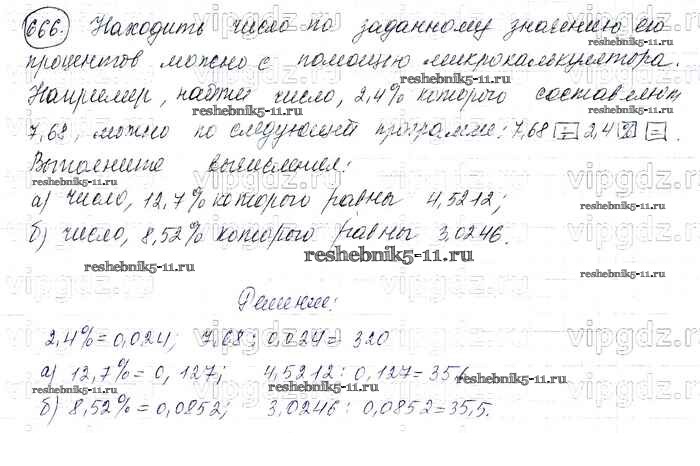 666. Находить число по заданному значению его
процентов можно с помощью микрокалькулятора.
reshebnik5-11.ru
Например, найти число, 2,4% которого составляют
7,68, можно по следующей программе: 7,68 ÷ 2,4 % = .
reshebnik5-11.ru
Выполните вычисления:
reshebnik5-11.ru
а) число, 12,7% которого равны 4,5212;
reshebnik5-11.ru
б) число, 8,52% которого равны 3,0246.
reshebnik5-11.ru
reshebnik5-11.ru
reshebnik5-11.ru
vipgdz.ru
Решение:
2,4% = 0,024; 7,68 : 0,024 = 320
а) 12,7% = 0,127; 4,5212 : 0,127 = 35,6
reshebnik5-11.ru
reshebnik5-11.ru
б) 8,52% = 0,0852; 3,0246 : 0,0852 = 35,5.